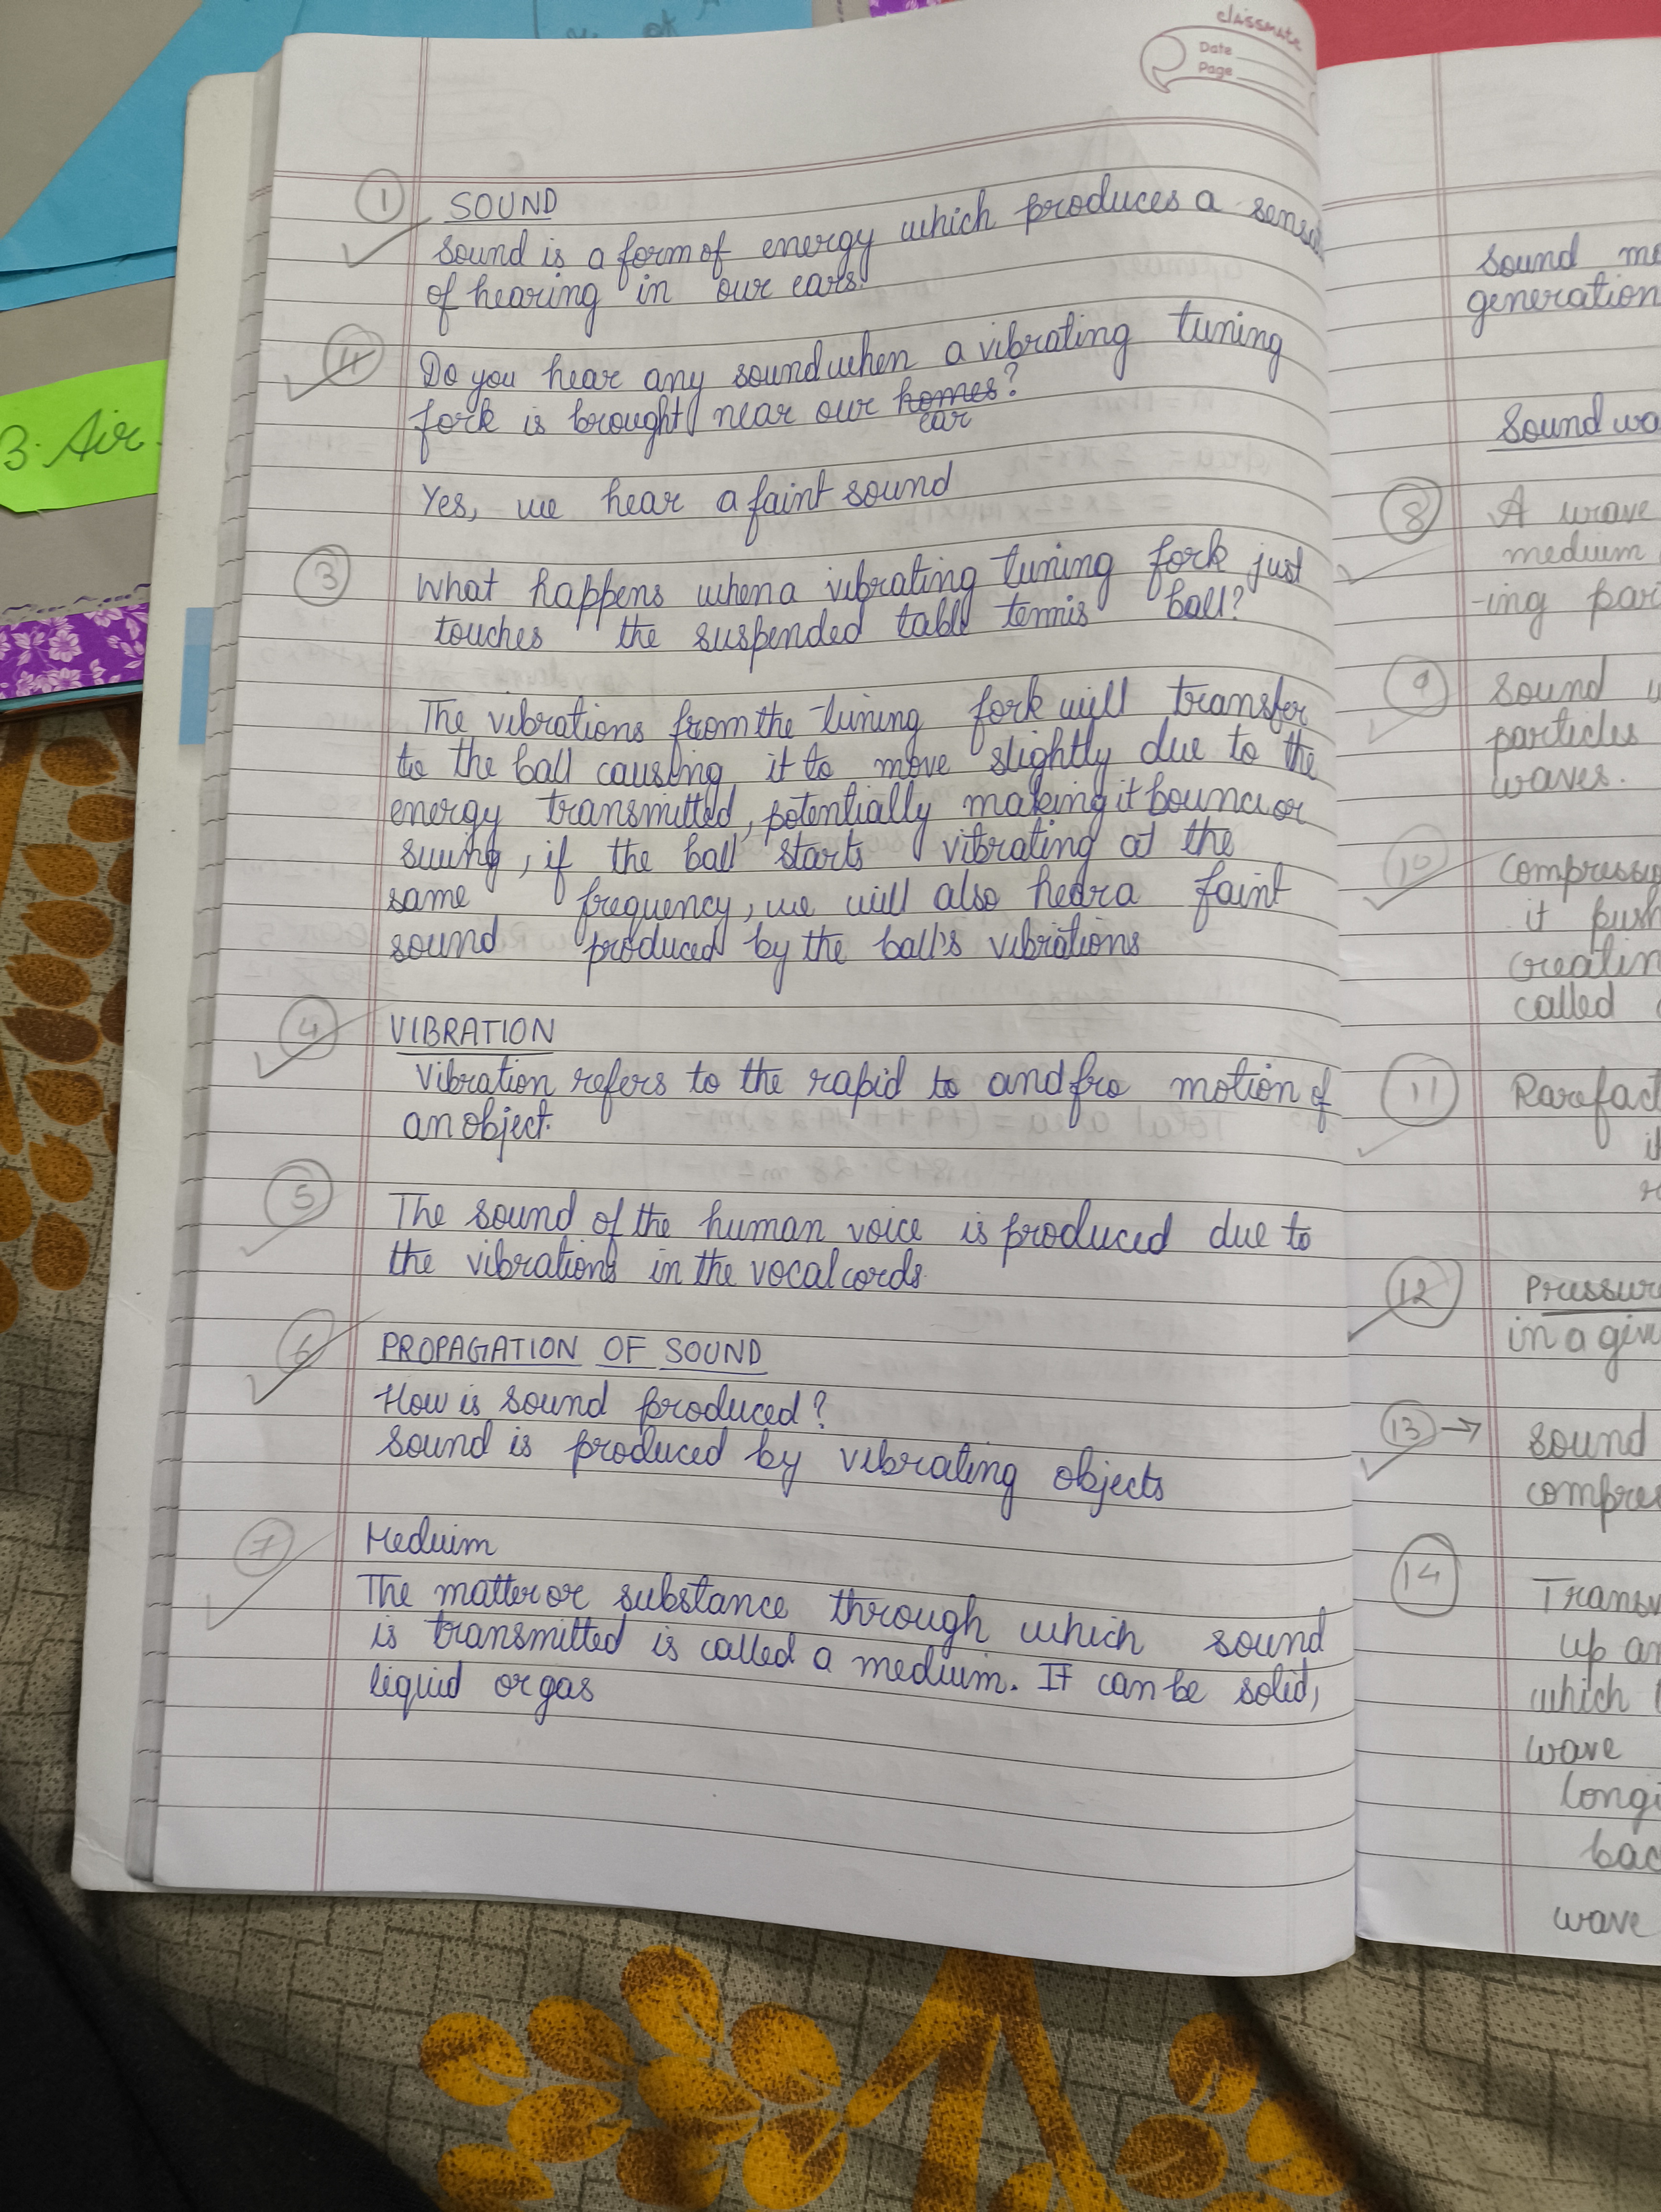 classmate
Date
Page
3. Air
1 SOUND
Sound is a form of energy which produces a
of hearing in our ears.
Do you hear any sound when a vibrating tuning
fork is brought near our homes?
ear
Yes, we hear a faint sound
3 What happens when a vibrating tuning fork just
touches the suspended table tennis ball?
The vibrations from the tuning fork will transfer
to the ball causing it to move slightly due to the
energy transmitted, potentially making it bounce or
swing, if the ball starts vibrating at the
same frequency, we will also hear a faint
sound produced by the ball's vibrations
4 VIBRATION
Vibration refers to the rapid to and fro motion of
an object.
5 The sound of the human voice is produced due to
the vibrations in the vocal cords.
6 PROPAGATION OF SOUND
How is sound produced?
Sound is produced by vibrating objects
7 Meduim
The matter or substance through which sound
is transmitted is called a medium. It can be solid,
liquid or gas
sound
generation
Sound
8 A wave
medium
-ing
9 Sound
particles
waves.
10
it
called
11
12
in a
13 → sound
14
up
which
wave
wave